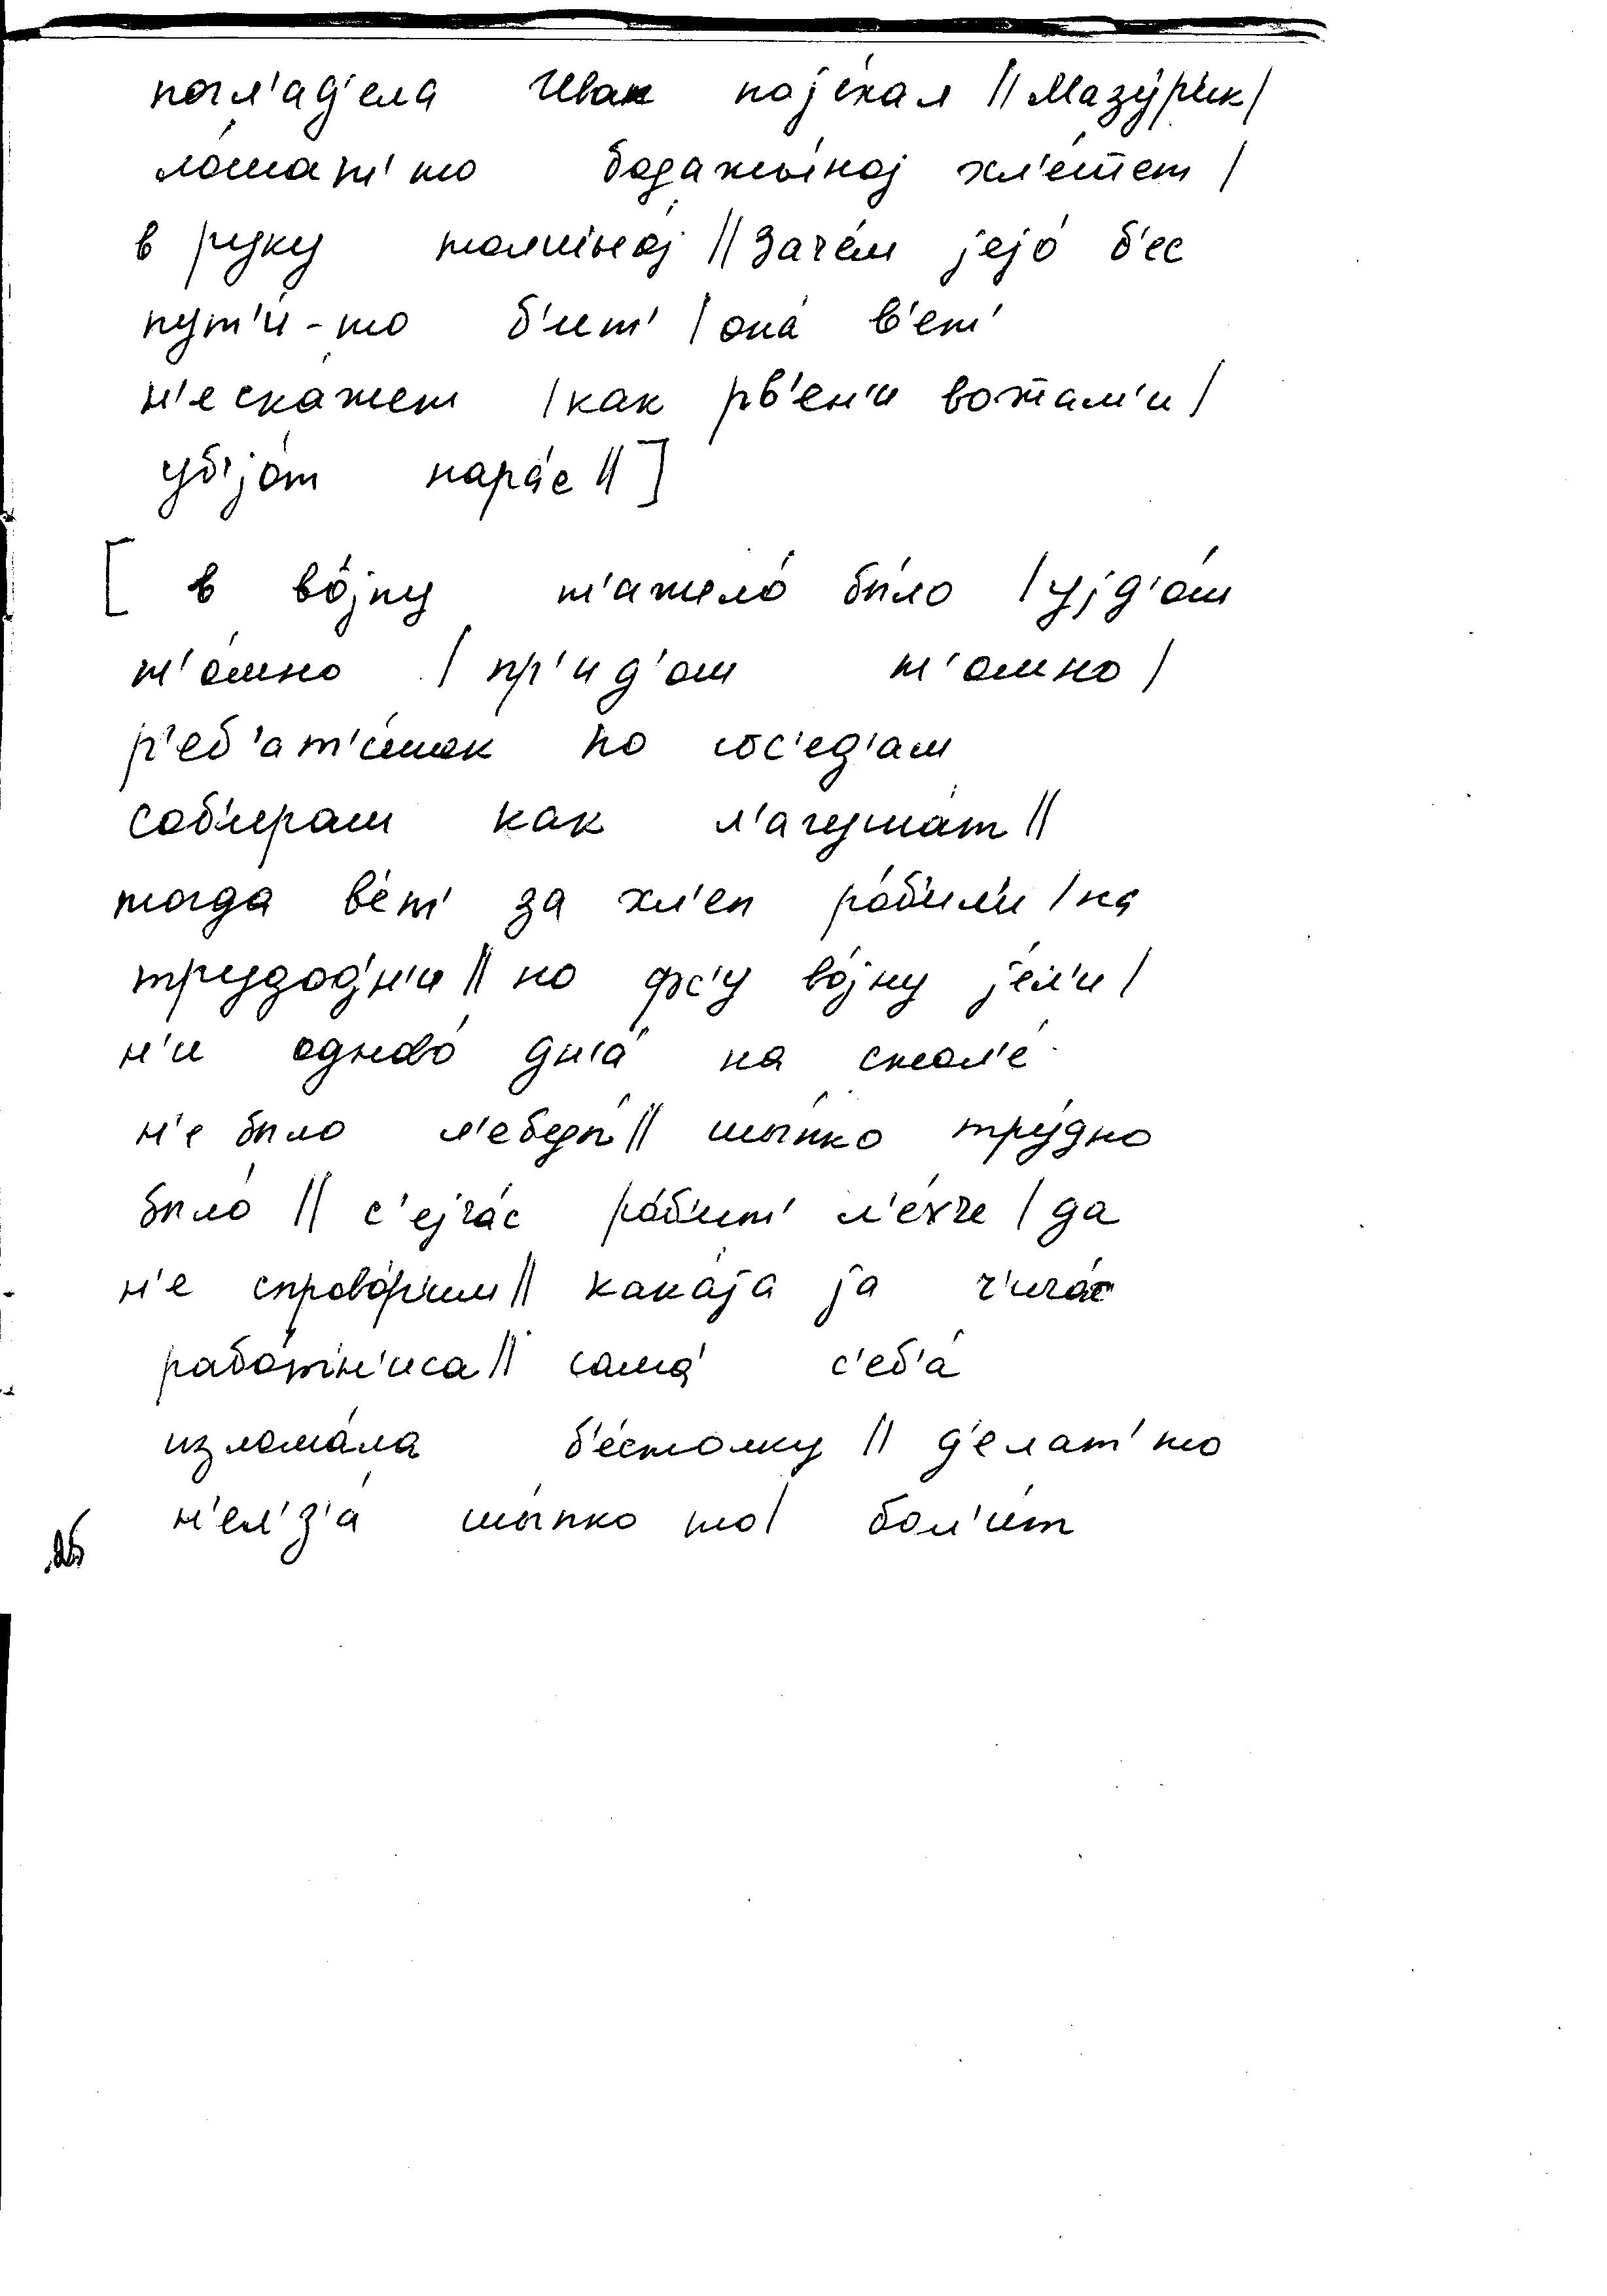 погл'ад'ела Иван појехал || Мазу́р'ик |
ло́шат' то бодажы́ној хл'е́шшет |
в руку толшіно́ј || Зачем јејо́ б'ес
пут'и́-то б'ит' | она́ в'ет'
н'е ска́жет | как рв'ен'и вожжам'и |
уб'јо́т нара́с || ]
[ в во́јну т'ажело́ бы́ло | ујд'о́ш
т'о́мно | пр'ид'ош т'омно |
р'еб'ат'и́шок по сос'ед'ам
соб'ираш как л'агуша́т ||
тогда в'ет' за хл'еп ро́б'ил'и | на
трудод'н'и || но фс'у во́јну је́л'и |
н'и одново́ дн'а́ на стол'е́
н'е было л'ебеды́ || шы́пко тру́дно
было́ || с'ејча́с ро́б'ит' л'е́хче | да
н'е спрово́р'им || кака́ја ја ч'ича́с
рабо́тн'иса || сама́ с'еб'а́
изломáла б'е́столку || д'елат' то
н'ел'з'а́ шы́пко то | бол'и́т
25